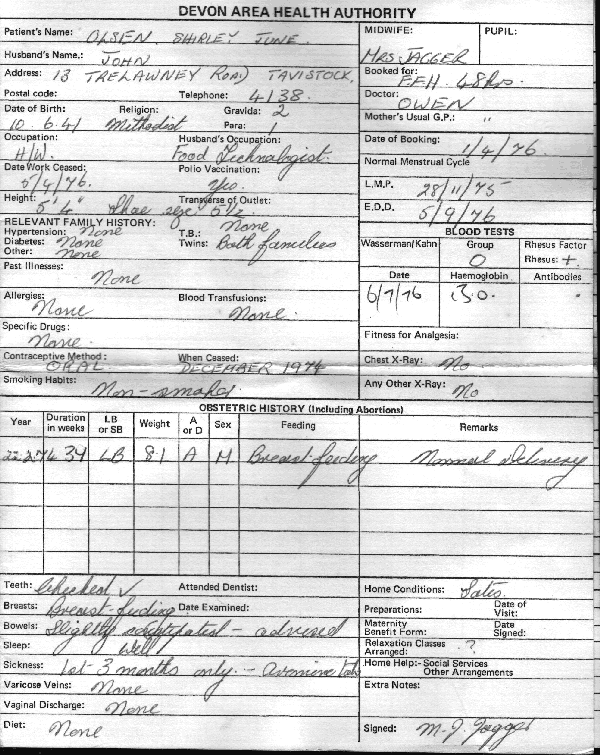 DEVON AREA HEALTH AUTHORITY
Patient's Name: OLSEN. SHIRLEY JUNE.
Husband's Name.: JOHN
Address: 13 TRELAWNEY ROAD TAVISTOCK.
Postal code: Telephone: 4138.
Date of Birth: 10 6.41 Religion: Methodist Gravida: 2 Para: 1
Occupation: H/W. Husband's Occupation: Food Technologist.
Date Work Ceased: 5/4/76. Polio Vaccination: Yes.
Height: 5'4" Shoe size 5½ Transverse of Outlet:
RELEVANT FAMILY HISTORY:
Hypertension: None T.B.: None
Diabetes: None Twins: Both families
Other: None
Past Illnesses: None
Allergies: None Blood Transfusions: None.
Specific Drugs: None.
Contraceptive Method: ORAL When Ceased: DECEMBER 1974
Smoking Habits: Non-smoker
MIDWIFE: MRS JAGGER PUPIL:
Booked for: F.F.H. 48 Hrs.
Doctor: OWEN
Mother's Usual G.P.: "
Date of Booking: 1/4/76
Normal Menstrual Cycle
L.M.P. 28/11/75
E.D.D. 5/9/76
BLOOD TESTS
Wasserman/Kahn Group O Rhesus Factor Rhesus: +.
Date Haemoglobin Antibodies
6/7/76 13.0.
Fitness for Analgesia:
Chest X-Ray: No
Any Other X-Ray: No
OBSTETRIC HISTORY (Including Abortions)
Year Duration in weeks LB or SB Weight A or D Sex Feeding Remarks
22.2.74 LB 8.1 A M Breast feeding Normal delivery
Teeth: Checked ✓ Attended Dentist:
Breasts: Breast-feeding Date Examined:
Bowels: Slightly constipated - advised
Sleep: Well
Sickness: 1st 3 months only. - Avomine tabs
Varicose Veins: None
Vaginal Discharge: None
Diet: None
Home Conditions: Satis.
Preparations: Date of Visit:
Maternity Benefit Form: Date Signed:
Relaxation Classes Arranged: ?
Home Help:- Social Services
Other Arrangements
Extra Notes:
Signed: M. J. Jagger